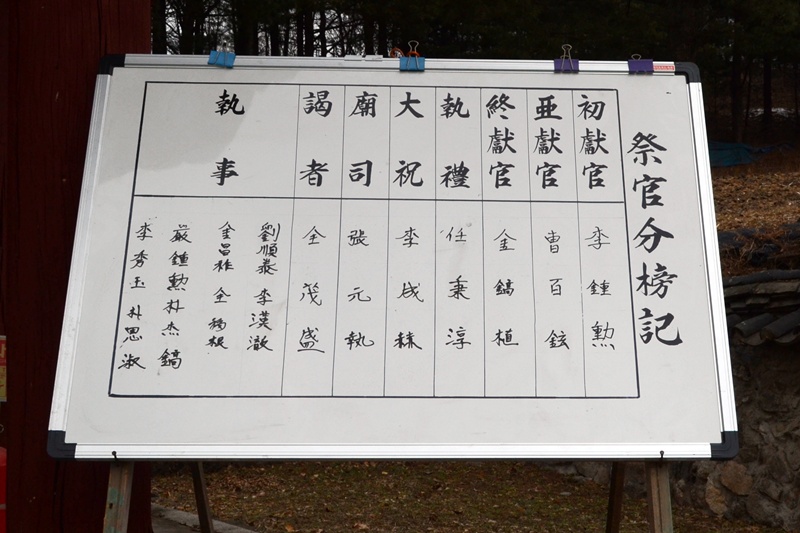 祭官分榜記
初獻官 李鍾勳
亜獻官 曺百鉉
終獻官 金鎬植
執禮 任秉淳
大祝 李成森
廟司 張元執
謁者 全茂盛
執事
劉順泰 李漢澈
金昌祚 全 根
嚴鍾勳 朴杰鎬
李秀玉 朴思淑